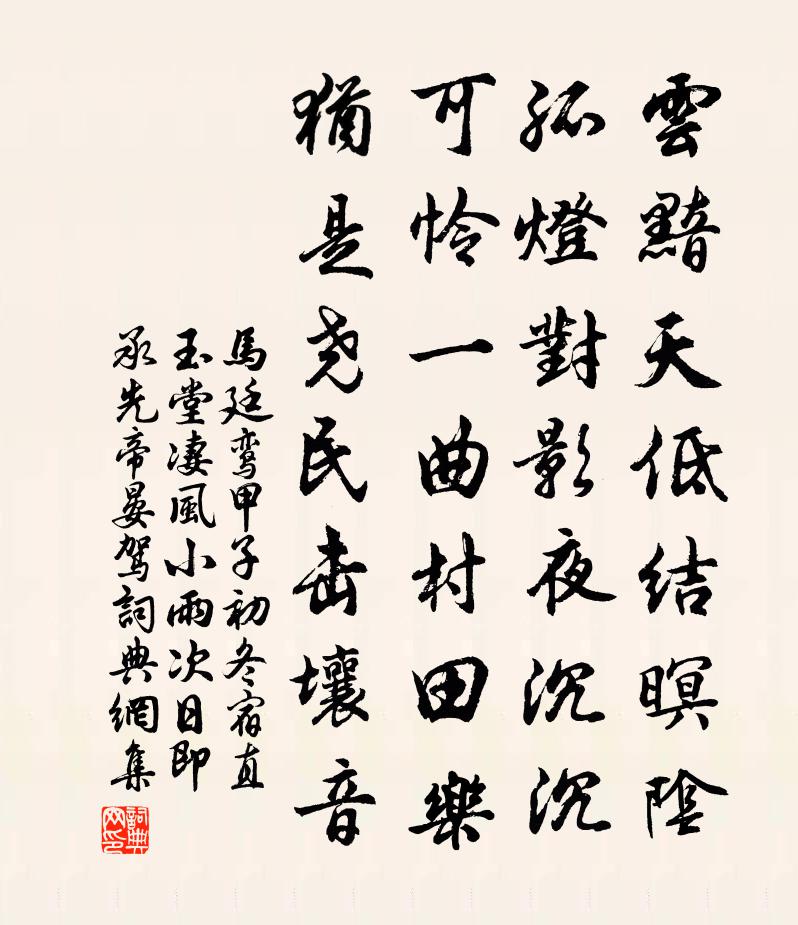 雲黯天低結暝陰
孤燈對影夜沉沉
可怜一曲村田樂
猶是尧民击壤音
馬廷鸾甲子初冬宿直
玉堂凄風小雨次日即
承先帝晏驾詞典網集
詞典
网印